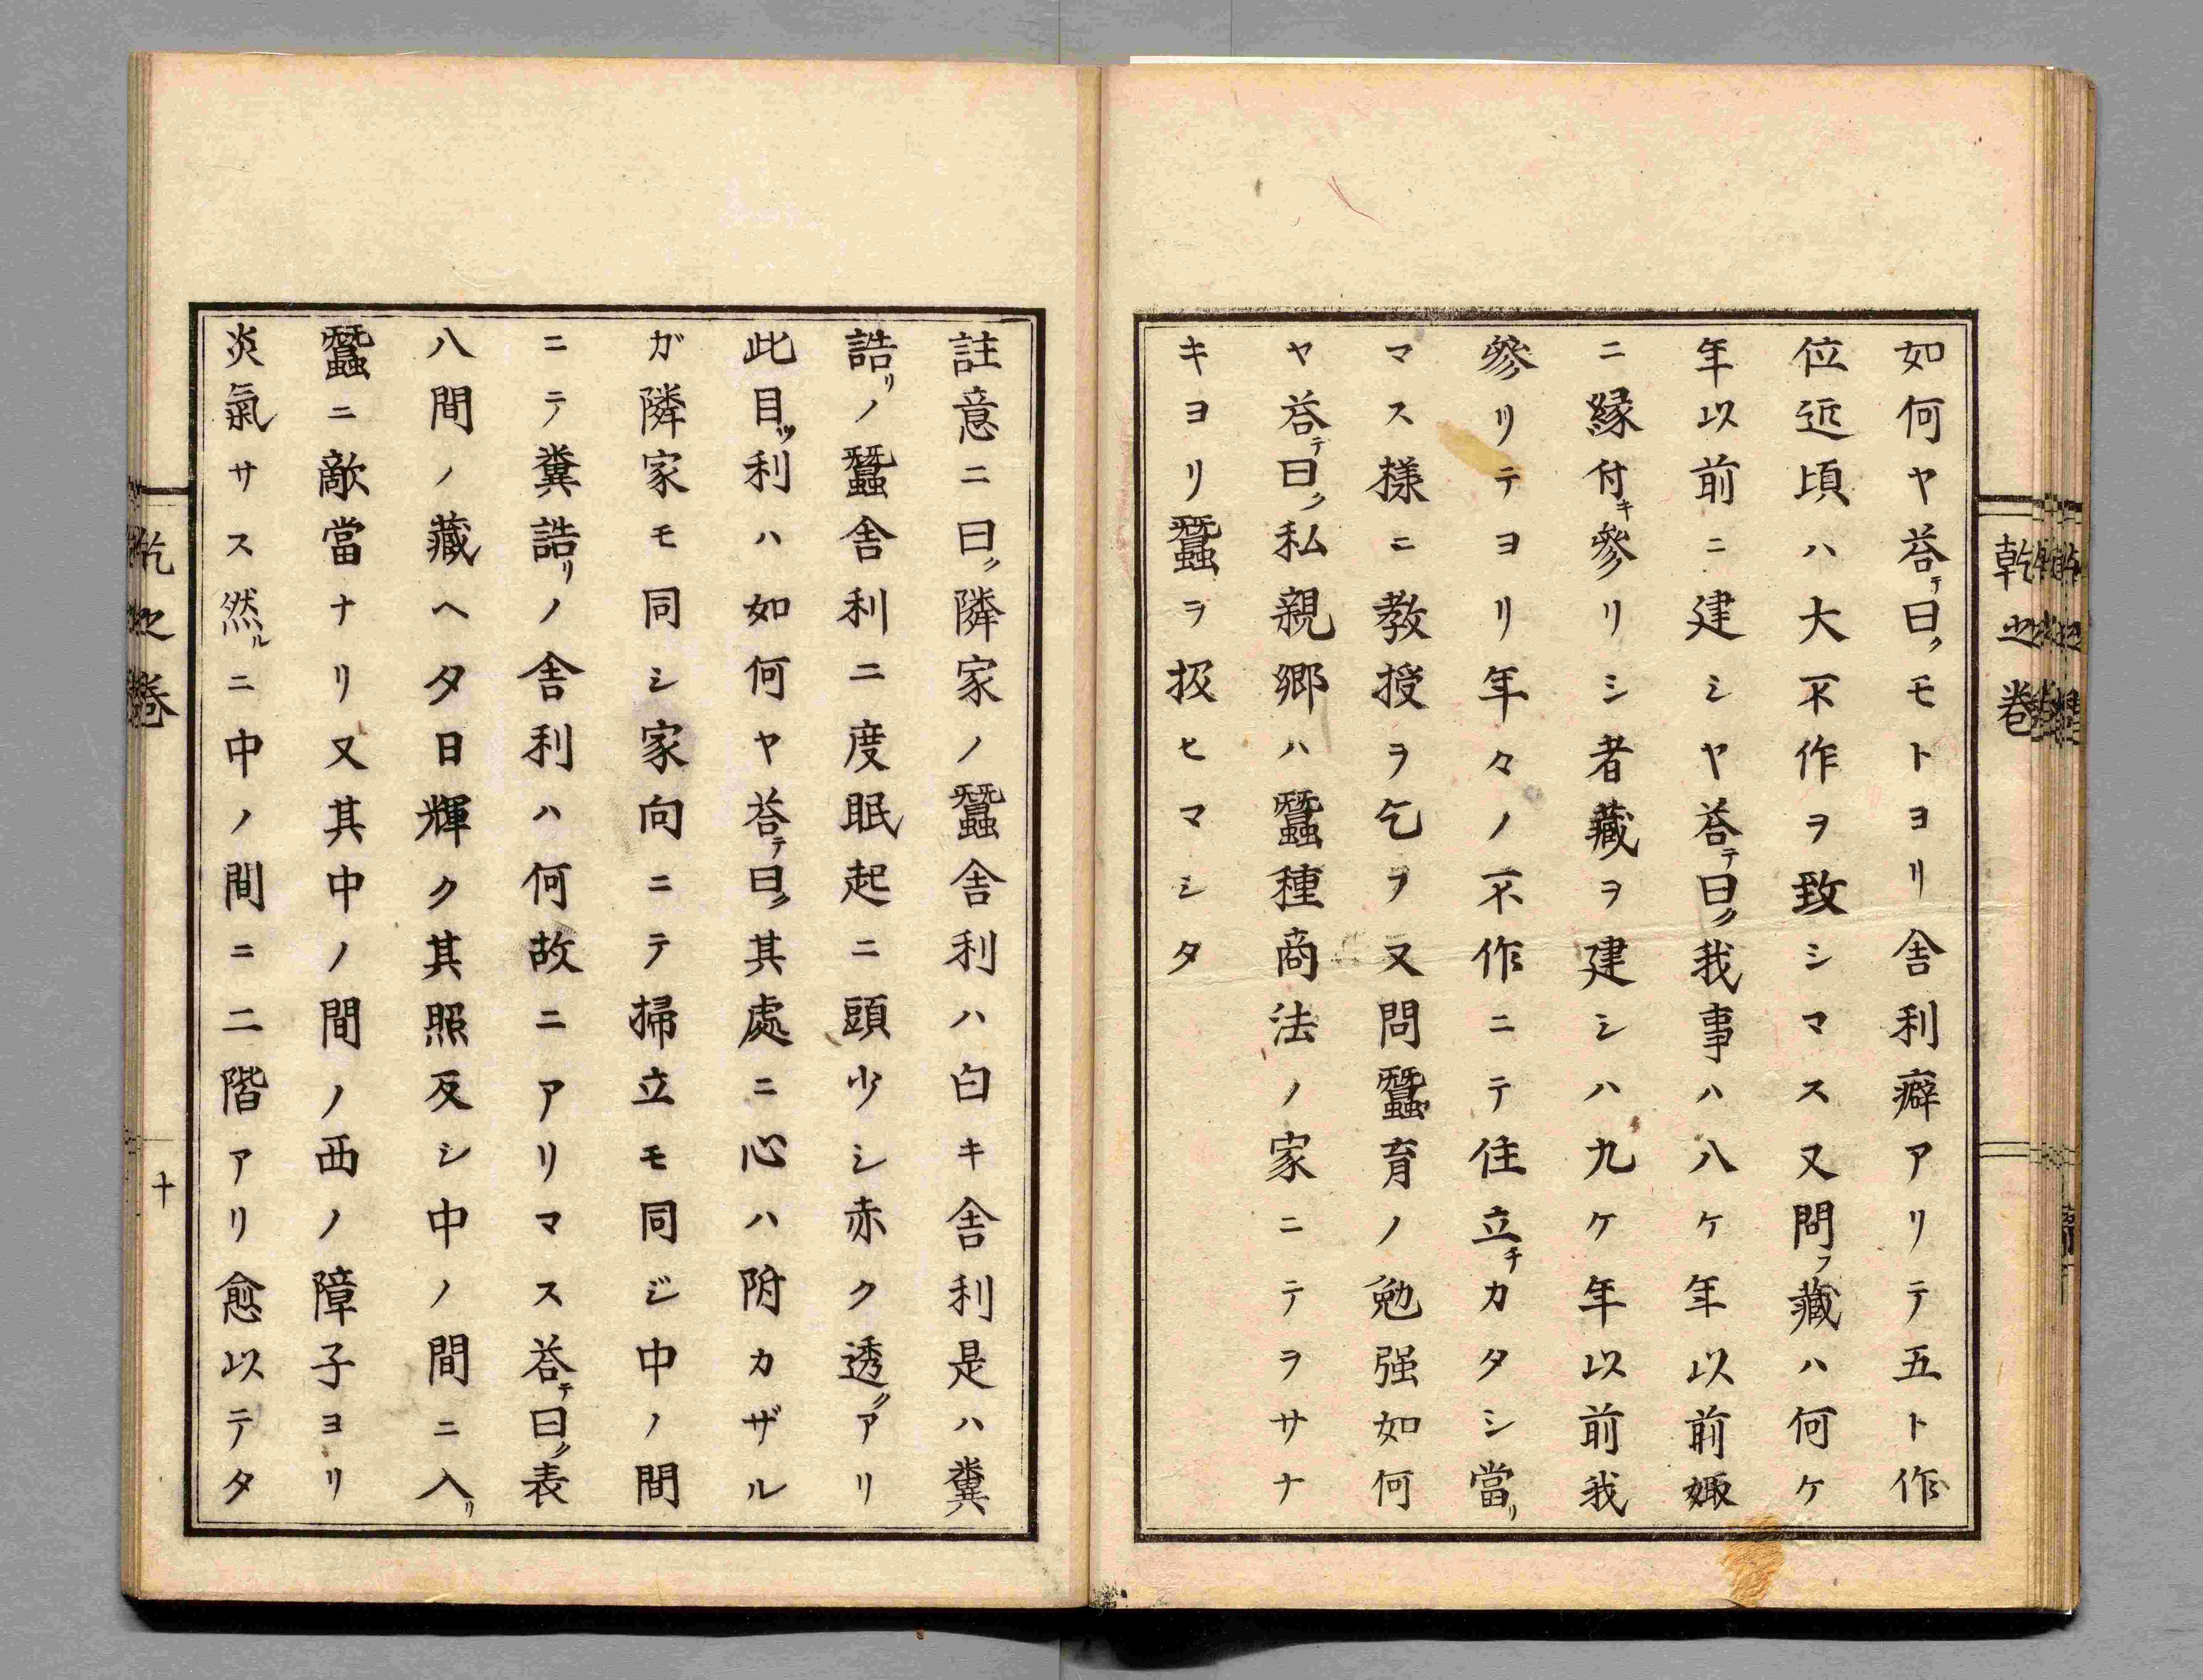 如何ヤ荅テ曰クモトヨリ舎利癖アリテ五ト作
位近頃ハ大不作ヲ致シマス又問フ藏ハ何ケ
年以前ニ建シヤ荅テ曰ク我事ハ八ケ年以前娵
ニ縁付キ參リシ者藏ヲ建シハ九ケ年以前我
參リテヨリ年々ノ不作ニテ住立チカタシ當リ
マス様ニ教授ヲ乞フ又問蠶育ノ勉强如何
ヤ荅テ曰ク私親郷ハ蠶種商法ノ家ニテヲサナ
キヨリ蠶ヲ扱ヒマシタ
乾之卷
註意ニ曰ク隣家ノ蠶舎利ハ白キ舎利是ハ糞
誥リノ蠶舎利ニ度眠起ニ頭少シ赤ク透クアリ
此目ツ利ハ如何ヤ荅テ曰ク其處ニ心ハ附カザル
ガ隣家モ同シ家向ニテ掃立モ同ジ中ノ間
ニテ糞誥リノ舎利ハ何故ニアリマス荅テ曰ク表
八間ノ藏ヘタ日輝ク其照反シ中ノ間ニ入リ
蠶ニ敵當ナリ又其中ノ間ノ西ノ障子ヨリ
炎氣サス然ルニ中ノ間ニ二階アリ愈以テタ
乾之卷
十